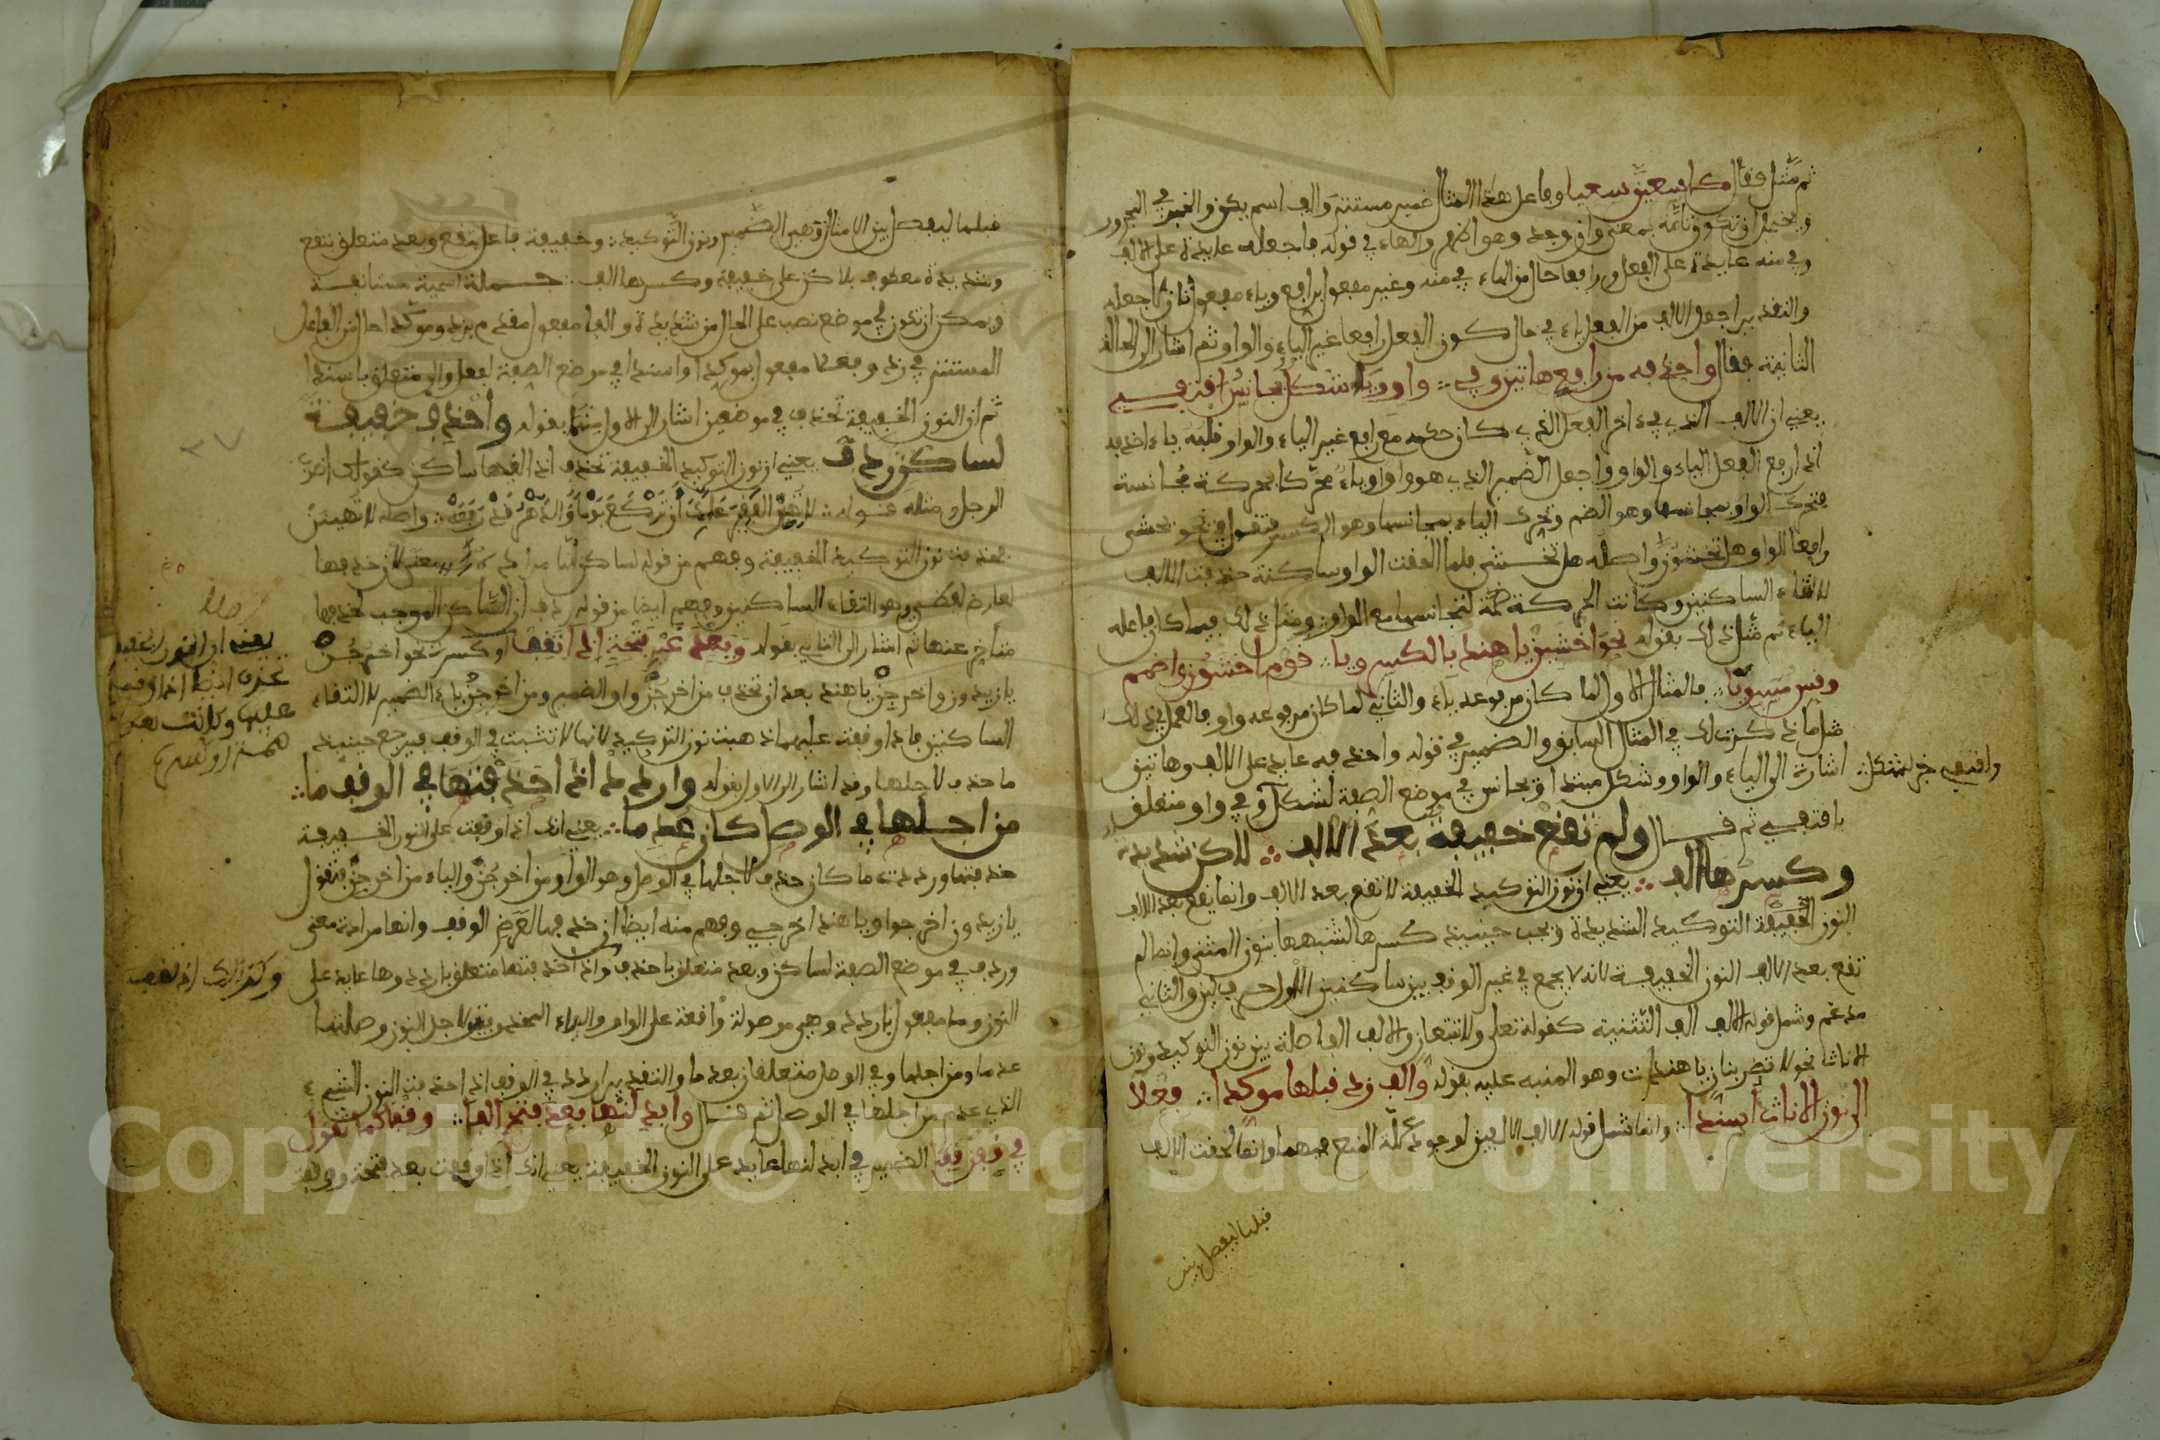 ثم مثل فقال كاسعين سعيا وفاعل هذا المثال ضمير مستتر والف اسم يكن والخبر في المجرور
ويحتمل ان تكون تامة بمعنى وان وجد وهو اظهر والهاء في قوله فاجعله عايدة على الالف
وفي منه عايدة على الفعل ورافعا حال من الهاء في منه وغير مفعول برافع وياء مفعول ثان لاجعله
والتقدير اجعل الالف من الفعل ياء في حال كون الفعل رافعا غير الياء والواو ثم اشار الى الحالة
الثانية فقال واحذفه من رافع هاتين وفي واو ويا شكل مجانس اقتفي
يعني ان الالف الذي في ءاخر الفعل الذي كان حكمه مع رافع غير الياء والواو قلبه ياء احذفه
اذا رفع الفعل الياء والواو واجعل الضمير الذي هو واو او ياء محركا بحركة مجانسة
فتحرك الواو بمجانسها وهو الضم وتحرك الياء بمجانسها وهو الكسر فتقول في نحو تخشى
رافعا الواو هل تخشون واصله هل تخشى فلما الحقت الواو ساكنة حذفت الالف
لالتقاء الساكنين وكانت الحركة ضمة لتجانسها مع الواو ومثل ذلك فيما كان فاعله
الياء ثم مثل ذلك بقوله نحو اخشين يا هند بالكسر ويا قوم اخشون واضمم
وقس مسويا فالمثال الاول لما كان مرفوعه ياء والثاني لما كان مرفوعه واو فالعمل في ذلك
مثل ما ذكرت لك في المثال السابق والضمير في قوله واحذفه عايد على الالف وهاتين
اشارة الى الياء والواو وشكل مبتدا ومجانس في موضع الصفة لشكل وفي واو متعلق
واقتفي خبر لشكل
باقتفي ثم قال ولم تقع خفيفة بعد الالف لاكن شديدة
وكسرها الف يعني ان نون التوكيد الخفيفة لا تقع بعد الالف وانما يقع بعد الالف
النون الخفيفة التوكيد الشديدة ويجب حينيذ كسرها لشبهها بنون المثنى وانما لم
تقع بعد الالف النون الخفيفة لانه لا يجمع في غير الوقف بين ساكنين الاول حرف لين والثاني
مدغم وشمل قوله الالف الف التثنية كقوله تعلى ولا تتبعان والالف الفاصلة بين نون التوكيد ونون
الاناث نحو لا تضربنان يا هندات وهو المنبه عليه بقوله والف زد قبلها موكدا فعلا
الى نون الاناث اسندا وانما شمل قوله الالف الالفين لوجود علة المنع فيهما وانما لحقت الالف
قبلها ليفصل بين
قبلها ليفصل بين الامثال وهي الضمير ونون التوكيد وخفيفة فاعل تقع وبعد متعلق بتقع
وشديدة معطوف بلاكن على خفيفة وكسرها الف جملة اسمية مستانفة
ويمكن ان تكون في موضع نصب على الحال من شديدة والفا مفعول مقدم بزد وموكدا حال من الفاعل
المستتر في زد وفعلا مفعول بموكدا واسندا في موضع الصفة لفعلا والى متعلق باسندا
ثم ان النون الخفيفة تحذف في موضعين اشار الى الاول منهما بقوله واحذف خفيفة
لساكن ردف يعني ان نون التوكيد الخفيفة تحذف اذا لقيها ساكن كقولك اضرب
الرجل ومثله قوله لا تهين الفقير علك ان تركع يوما والدهر قد رفعه واصله لا تهينن
فحذفت نون التوكيد الخفيفة وفهم من قوله لساكن انها مرادة معنى لان حذفها
لعارض لفظي وهو التقاء الساكنين وفهم ايضا من قوله ردف ان الساكن الموجب لحذفها
متاخر عنها ثم اشار الى الثاني بقوله وبعد غير فتحة اذا تقف او كسرة نحو اخرجن
يا زيدون واخرجن يا هند بعد ان تحذف من اخرجن واو الضمير ومن اخرجن ياء الضمير لالتقاء
الساكنين فاذا وقفت عليهما ذهبت نون التوكيد لانها لا تثبت في الوقف فيرجع حينيذ
ما حذف لاجلها وقد اشار الى الاول بقوله واردد اذا حذفتها في الوقف ما
من اجلها في الوصل كان عدما يعني انك اذا وقفت على النون الخفيفة
حذفتها ورددت ما كان حذف لاجلها في الوصل وهو الواو من اخرجن والياء من اخرجن فتقول
يا زيدون اخرجوا ويا هند اخرجي وفهم منه ايضا ان حذفها لعارض الوقف وانها مرادة معنى
وردف في موضع الصفة لساكن وبعد متعلق باحذف واذا حذفتها متعلق باردد وها عايد على
النون وما مفعول باردد وهي موصولة واقعة على الواو والياء المحذوفين لاجل النون وصلتها
عدما ومن اجلها وفي الوصل متعلقان بعدما والتقدير اردد في الوقف اذا حذفت النون الشيء
الذي عدم من اجلها في الوصل ثم قال وابدلنها بعد فتح الفا وقفا كما تقول
في قفن قفا الضمير في ابدلنها عايد على النون الخفيفة يعني انك اذا وقفت بعد فتحة